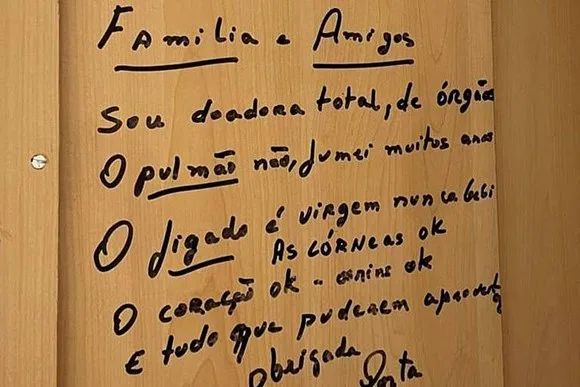 Família e Amigos
Sou doadora total, de órgãos
O pulmão não, fumei muitos anos
O figado é virgem nunca bebi
As córneas ok
O coração ok - ok
E tudo que puderem
Obrigada